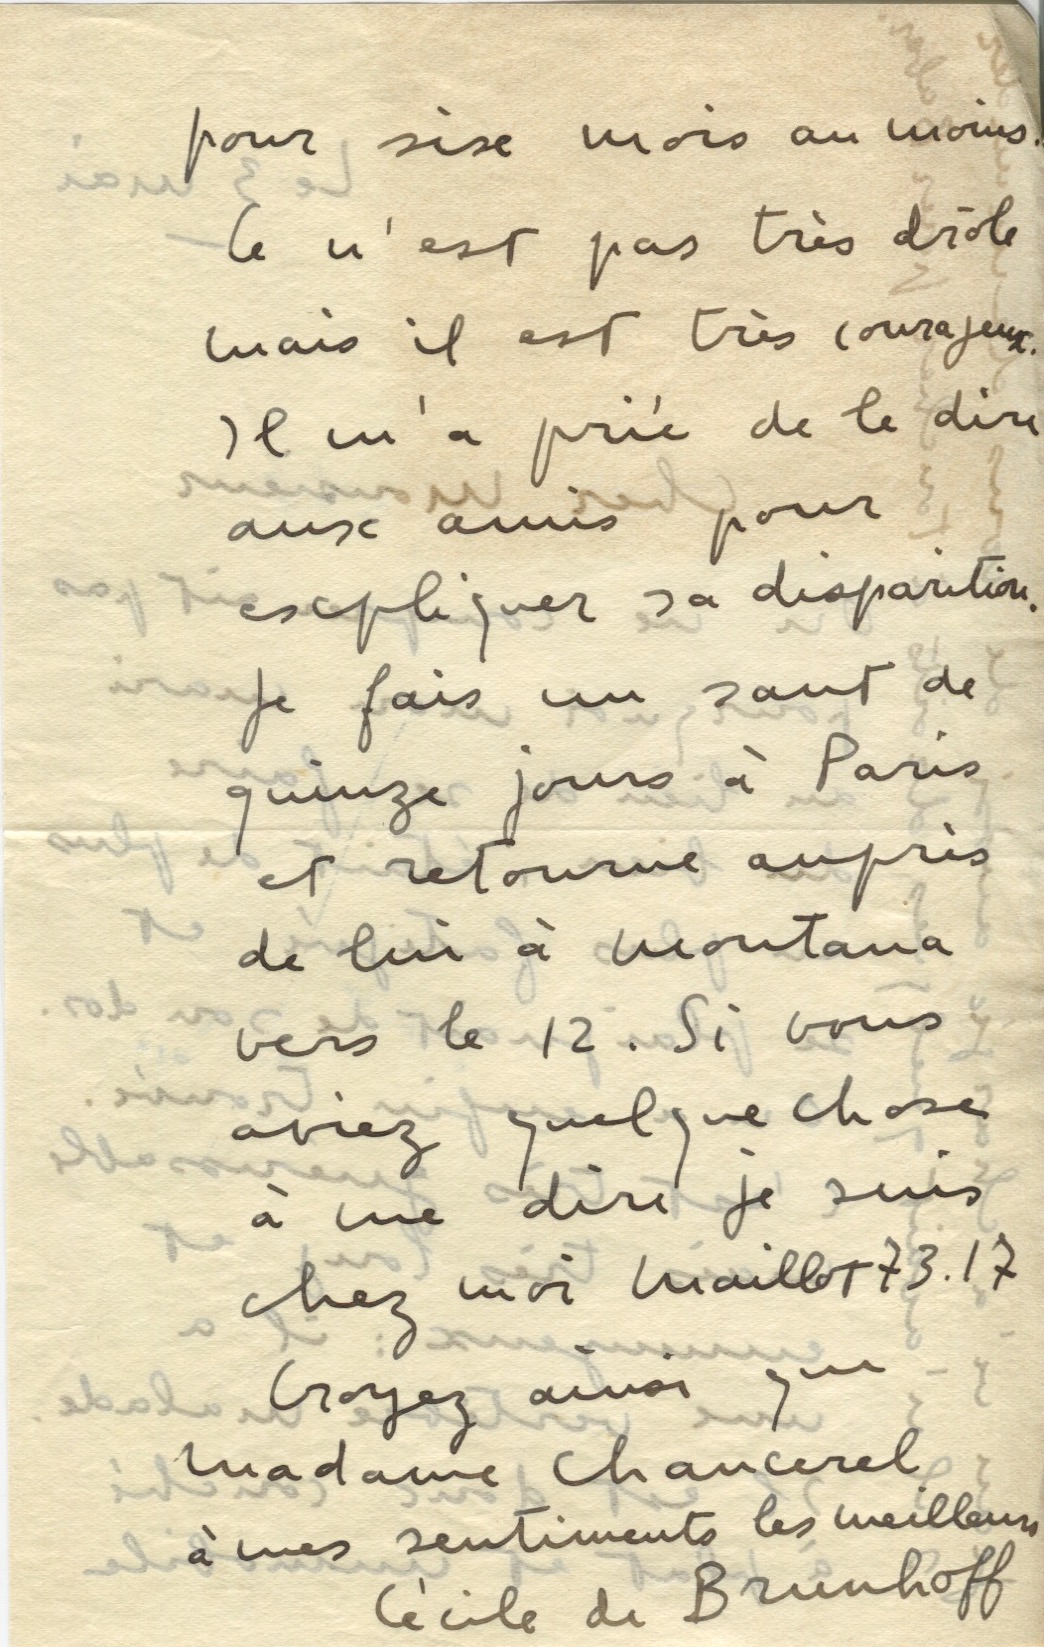 pour six mois au moins.
Ce n'est pas très drôle
mais il est très courageux.
Il m'a prié de le dire
aux amis pour
expliquer sa disparition.
Je fais un saut de
quinze jours à Paris
et retourne auprès
de lui à Montana
vers le 12. Si vous
aviez quelque chose
à me dire je suis
chez moi Maillot 73.17
Croyez ainsi que
Madame Chancerel
à mes sentiments les meilleurs
Cécile de Brunhoff